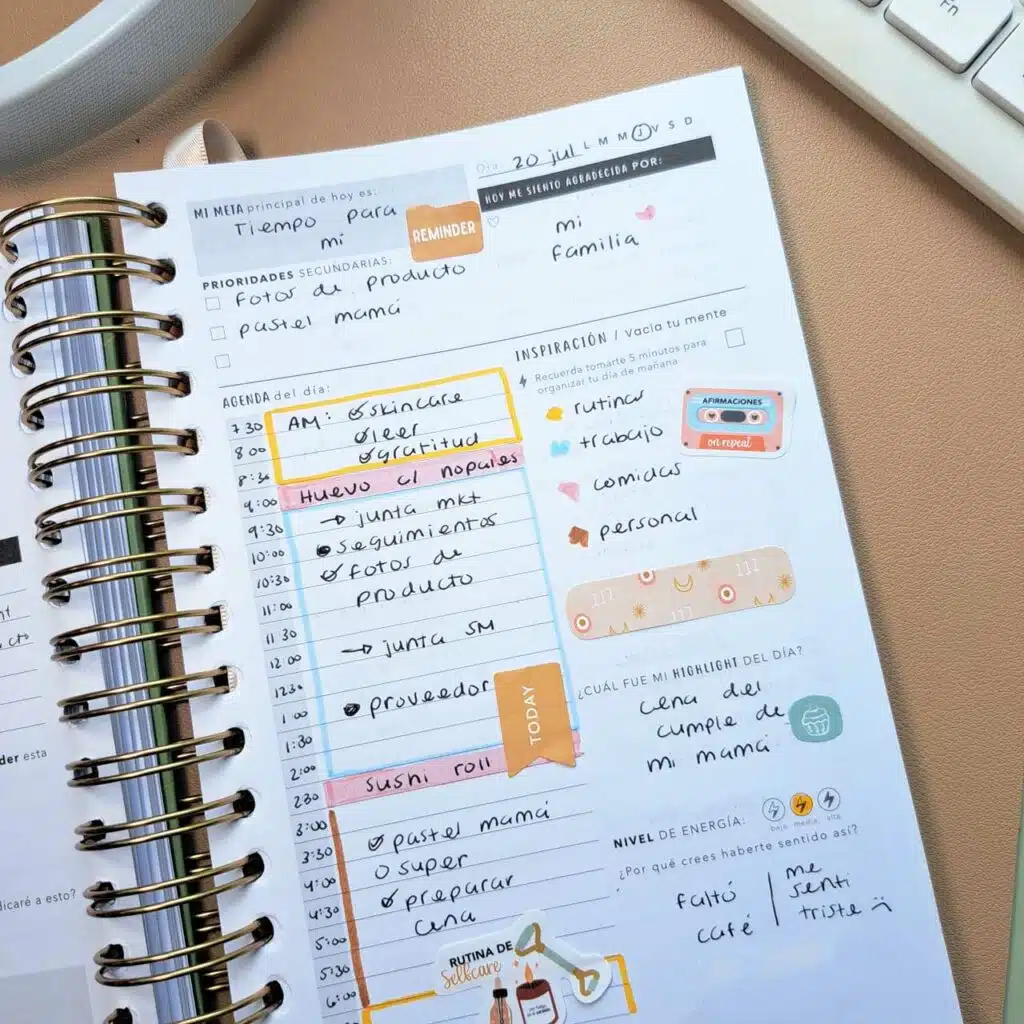 Fn
Día 20 jul L M M J V S D
MI META principal de hoy es:
Tiempo para
mi
REMINDER
HOY ME SIENTO AGRADECIDA POR:
mi
familia
PRIORIDADES SECUNDARIAS:
fotos de producto
pastel mamá
AGENDA del día:
7 30 AM: skincare
8 00 leer
8:30 gratitud
9:00 Huevo c/ nopales
9:30 → junta mkt
10:00 seguimientos
10:30 fotos de
11:00 producto
11 30
12 00 → junta SM
12 30
1 00 proveedor
1:30
TODAY
2:00
2 30 sushi roll
3:00
3:30 pastel mamá
4:00 super
4:30 preparar
5:00 cena
5:30
6:00
RUTINA DE
Selfcare
INSPIRACIÓN / Vacía tu mente
Recuerda tomarte 5 minutos para
organizar tu día de mañana
rutinas
trabajo
comidas
personal
AFIRMACIONES
on repeat
111 111
111
¿CUÁL FUE MI HIGHLIGHT DEL DÍA?
cena del
cumple de
mi mamá
NIVEL DE ENERGÍA:
baja media alta
¿Por qué crees haberte sentido así?
faltó
café
me
sentí
triste
der esta
dicaré a esto?